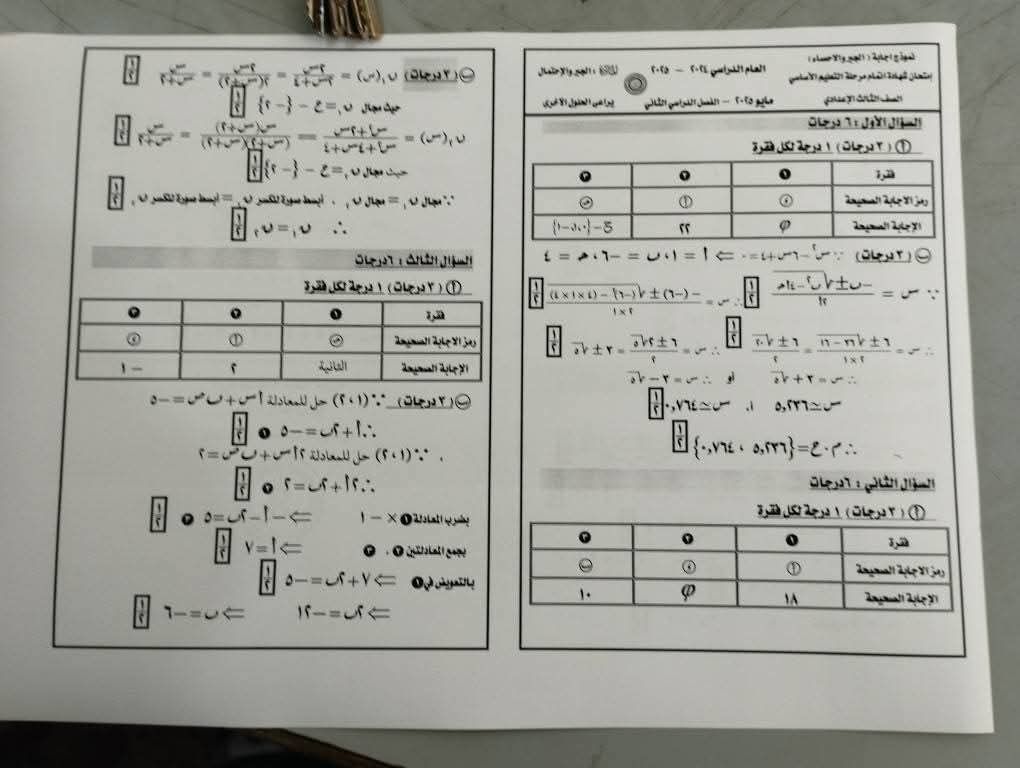 نموذج إجابة : الجبر والاحصاء :
إمتحان شهادة اتمام مرحلة التعليم الأساسي
الصف الثالث الإعدادي
العام الدراسي ٢٠٢٤ - ٢٠٢٥
مايو ٢٠٢٥ - الفصل الدراسي الثاني
المادة : الجبر والإحتمال
يراعى الحلول الأخرى
السؤال الأول : ٦ درجات
أ ( ٣ درجات ) ١ درجة لكل فقرة
فقرة ١ ٢ ٣
رمز الاجابة الصحيحة د أ ص
الإجابة الصحيحة φ ٢٢ ح - {٠ ، ١-}
ب ( ٣ درجات ) ∵ س٢ - ٦س + ٤ = ٠ ⇐ أ = ١ ، ب = -٦ ، هـ = ٤
∵ س = (-ب ± √(ب٢ - ٤أهـ)) / ٢أ ١/٢ ∴ س = (-(-٦) ± √((-٦)٢ - (٤×١×٤))) / ٢×١ ١/٢
∴ س = (٦ ± √(٣٦ - ١٦)) / ٢×١ = (٦ ± √٢٠) / ٢ ١/٢ ∴ س = (٦ ± ٢√٥) / ٢ = ٣ ± √٥ ١/٢
∴ س = ٣ + √٥ او ∴ س = ٣ - √٥
س ≃ ٥,٢٣٦ ، س ≃ ٠,٧٦٤ ١/٢
∴ م . ح = {٥,٢٣٦ ، ٠,٧٦٤} ١/٢
السؤال الثاني : ٦ درجات
أ ( ٣ درجات ) ١ درجة لكل فقرة
فقرة ١ ٢ ٣
رمز الاجابة الصحيحة أ د ب
الإجابة الصحيحة ١٨ φ ١٠
ب ( ٣ درجات ) ن١(س) = ٢س / (٢س + ٤) = ٢س / ٢(س + ٢) = س / (س + ٢) ١/٢
حيث مجال ن١ = ح - {-٢} ١/٢
ن٢(س) = (س٢ + ٢س) / (س٢ + ٤س + ٤) = س(س + ٢) / (س + ٢)(س + ٢) = س / (س + ٢) ١/٢
حيث مجال ن٢ = ح - {-٢} ١/٢
∵ مجال ن١ = مجال ن٢ ، أبسط صورة للكسر ن١ = أبسط صورة للكسر ن٢ ١/٢
∴ ن١ = ن٢ ١/٢
السؤال الثالث : ٦ درجات
أ ( ٣ درجات ) ١ درجة لكل فقرة
فقرة ١ ٢ ٣
رمز الاجابة الصحيحة ص أ د
الإجابة الصحيحة الثانية ٢ - ١
ب ( ٣ درجات ) ∵ (١ ، ٢) حل للمعادلة أس + ب ص = - ٥
∴ أ + ٢ب = - ٥ ١ ١/٢
∵ (١ ، ٢) حل للمعادلة ٢أس + ب ص = ٢
∴ ٢أ + ٢ب = ٢ ٢ ١/٢
بضرب المعادلة ١ × - ١ ⇐ - أ - ٢ب = ٥ ٣ ١/٢
بجمع المعادلتين ٢ ، ٣ ⇐ أ = ٧ ١/٢
بالتعويض في ١ ⇐ ٧ + ٢ب = - ٥ ١/٢
⇐ ٢ب = - ١٢ ⇐ ب = - ٦ ١/٢